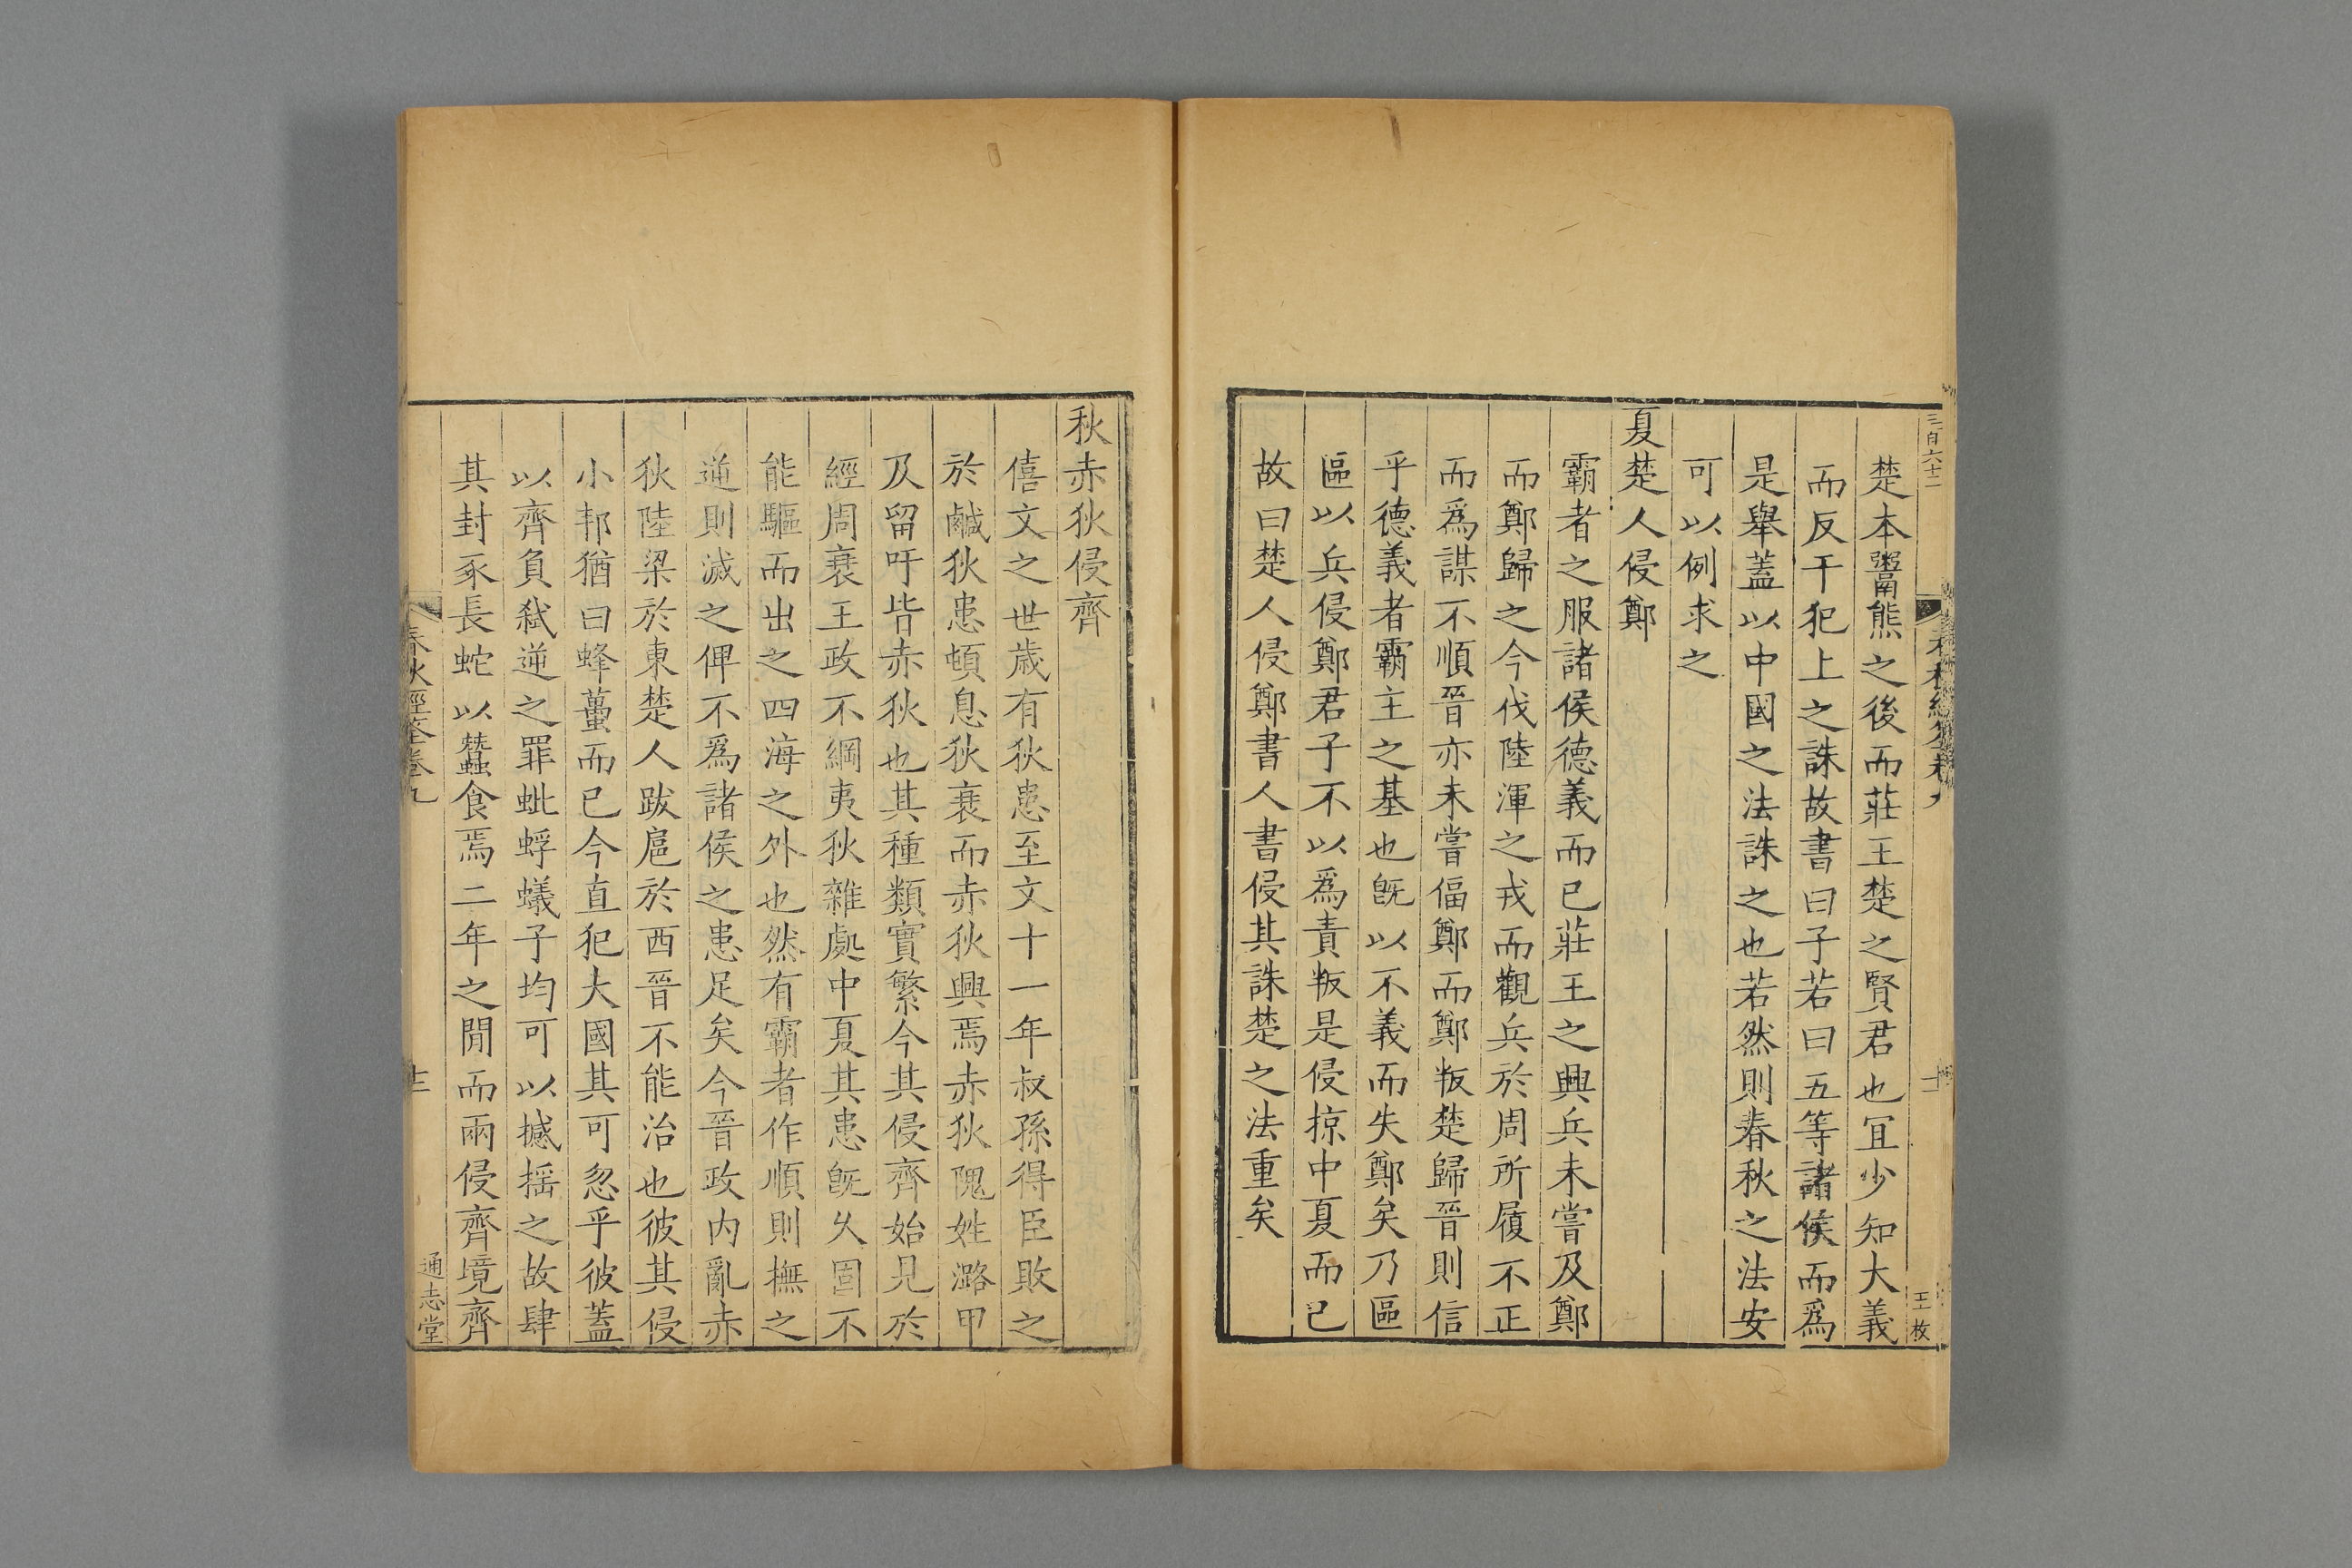 三百六十二
王枚
楚本鬻熊之後而莊王楚之賢君也冝少知大義
而反干犯上之誅故書曰子若曰五等諸侯而爲
是舉蓋以中國之法誅之也若然則春秋之法安
可以例求之
夏楚人侵鄭
霸者之服諸侯德義而已莊王之興兵未嘗及鄭
而鄭歸之今伐陸渾之戎而觀兵於周所履不正
而爲謀不順晉亦未嘗偪鄭而鄭叛楚歸晉則信
乎德義者霸主之基也旣以不義而失鄭矣乃區
區以兵侵鄭君子不以爲責叛是侵掠中夏而已
故曰楚人侵鄭書人書侵其誅楚之法重矣
秋赤狄侵齊
僖文之世歲有狄患至文十一年叔孫得臣敗之
於鹹狄患頓息狄衰而赤狄興焉赤狄隗姓潞甲
及留吁皆赤狄也其種類實繁今其侵齊始見於
經周衰王政不綱夷狄雜處中夏其患旣久固不
能驅而出之四海之外也然有霸者作順則撫之
逆則滅之俾不爲諸侯之患足矣今晉政內亂赤
狄陸梁於東楚人跋扈於西晉不能治也彼其侵
小邦猶曰蜂蠆而已今直犯大國其可忽乎彼蓋
以齊負弒逆之罪蚍蜉蟻子均可以撼揺之故肆
其封豕長蛇以蠶食焉二年之閒而兩侵齊境齊
春秋經筌卷九
十二
通志堂